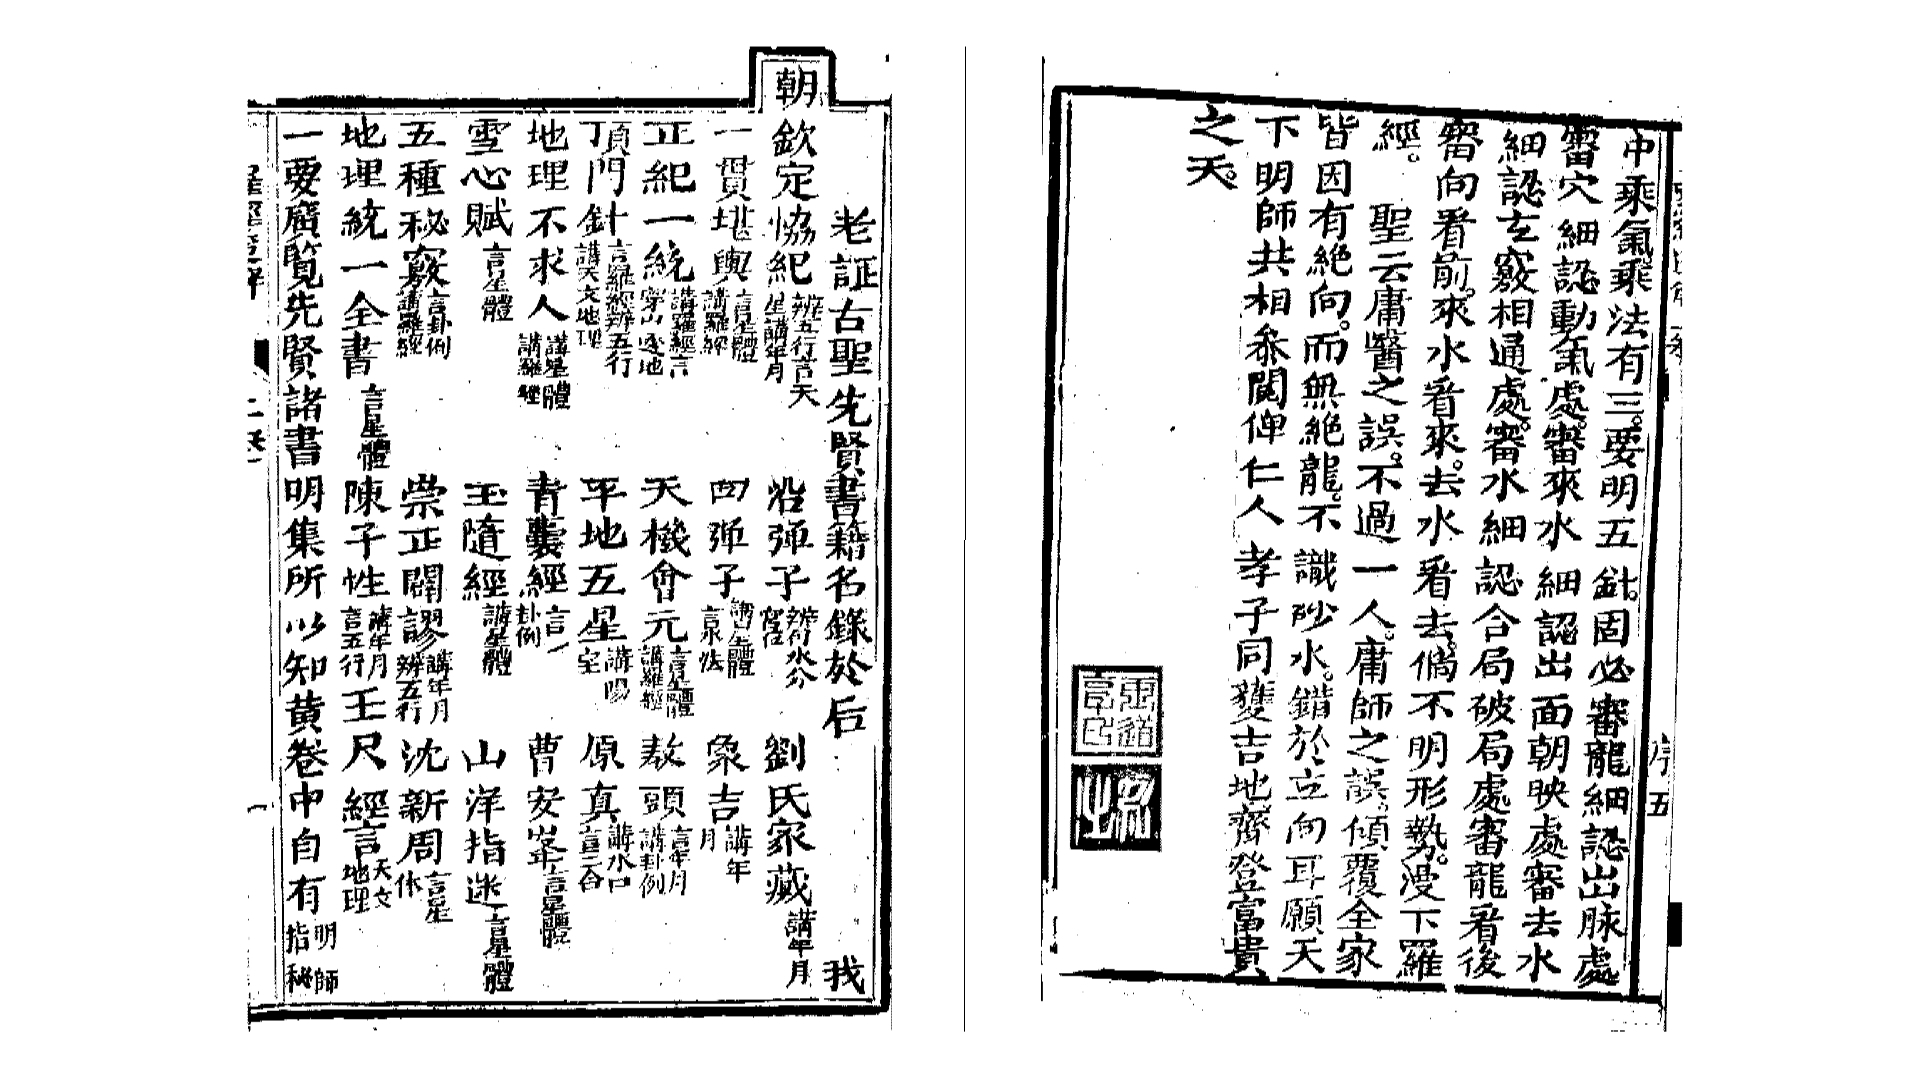 中乘氣乘法有三。要明五針。固必審龍細認出脉處
審穴細認動氣處。審來水細認出面朝映處審去水
細認玄竅相通處。審水細認合局破局處審龍看後
審向看前。來水看來。去水看去。倘不明形勢。漫下羅
經。聖云庸醫之誤。不過一人。庸師之誤。傾覆全家
皆因有絶向。而無絶龍。不識砂水。錯於立向耳願天
下明師共相叅閱俾仁人孝子同獲吉地齊登富貴
之天。
序五
老証古聖先賢書籍名錄於后 我
朝
欽定協紀辨五行言天星講年月 弹子 劉氏家藏講年月
一貫堪輿言星體講羅經 弹子講星體言水法 象吉講年月
正紀一統講羅經言穿山透地 天機會元言星體講羅經 敖頭言年月講卦例
頂門針言羅經辨五行講天文地理 平地五星講陽宅 原真講水口言三合
地理不求人講星體講羅經 青囊經言卦例 曹安峯言星體
雪心賦言星體 玉隨經講星體 山洋指迷言星體
五種秘竅言卦例講羅經 崇正闢謬講年月辨五行 沈新周言星体
地理統一全書言星體 陳子性講年月言五行 玉尺經言天文地理
一要廣覧先賢諸書明集所以知黄卷中自有明師指秘